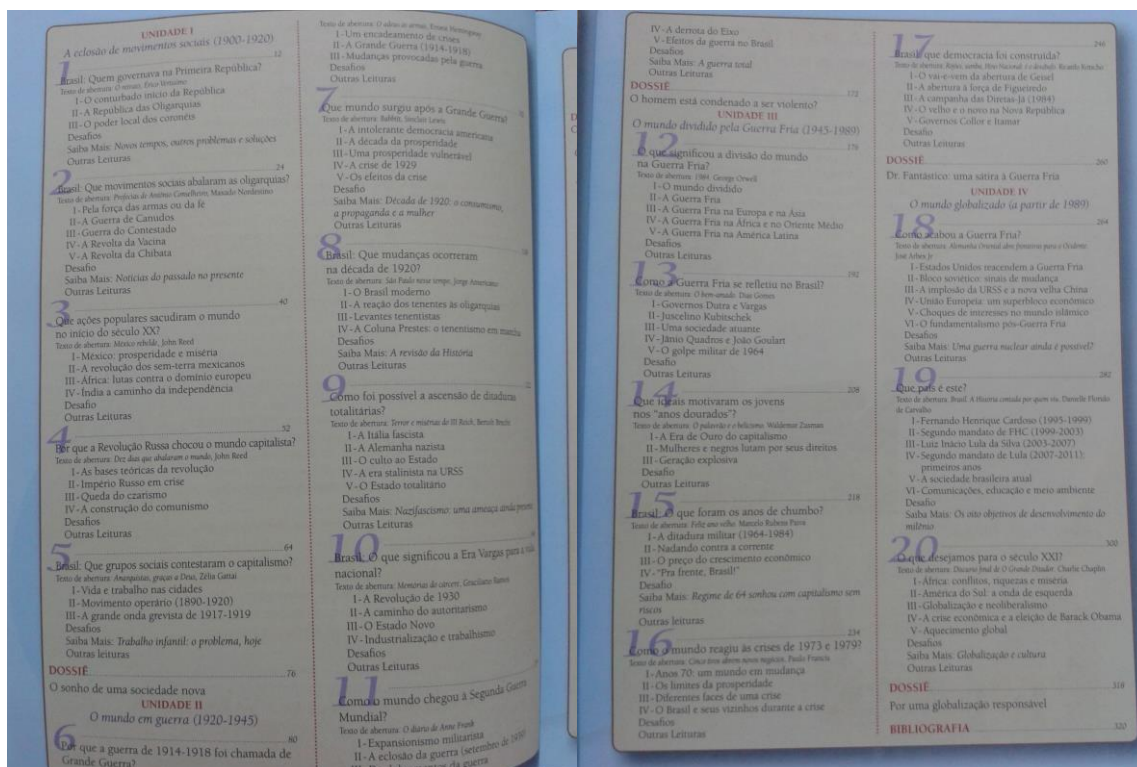 UNIDADE I
A eclosão de movimentos sociais (1900-1920)
12
1
Brasil: Quem governava na Primeira República?
Texto de abertura: O sobrado, Érico Veríssimo
I-O conturbado início da República
II-A República das Oligarquias
III-O poder local dos coronéis
Desafios
Saiba Mais: Novos tempos, outros problemas e soluções
Outras Leituras
24
2
Brasil: Que movimentos sociais abalaram as oligarquias?
Texto de abertura: Profecias de Antônio Conselheiro, Maxado Nordestino
I-Pela força das armas ou da fé
II-A Guerra de Canudos
III-Guerra do Contestado
IV-A Revolta da Vacina
V-A Revolta da Chibata
Desafio
Saiba Mais: Notícias do passado no presente
Outras Leituras
40
3
Que ações populares sacudiram o mundo
no início do século XX?
Texto de abertura: México rebelde, John Reed
I-México: prosperidade e miséria
II-A revolução dos sem-terra mexicanos
III-África: lutas contra o domínio europeu
IV-Índia a caminho da independência
Desafio
Outras Leituras
52
4
Por que a Revolução Russa chocou o mundo capitalista?
Texto de abertura: Dez dias que abalaram o mundo, John Reed
I-As bases teóricas da revolução
II-Império Russo em crise
III-Queda do czarismo
IV-A construção do comunismo
Desafios
Outras Leituras
64
5
Brasil: Que grupos sociais contestaram o capitalismo?
Texto de abertura: Anarquistas, graças a Deus, Zélia Gattai
I-Vida e trabalho nas cidades
II-Movimento operário (1890-1920)
III-A grande onda grevista de 1917-1919
Desafios
Saiba Mais: Trabalho infantil: o problema, hoje
Outras leituras
DOSSIÊ 76
O sonho de uma sociedade nova
UNIDADE II
O mundo em guerra (1920-1945)
80
6
Por que a guerra de 1914-1918 foi chamada de
Grande Guerra?
Texto de abertura: O adeus às armas, Ernest Hemingway
I-Um encadeamento de crises
II-A Grande Guerra (1914-1918)
III-Mudanças provocadas pela guerra
Desafios
Outras Leituras
7
Que mundo surgiu após a Grande Guerra?
Texto de abertura: Babbitt, Sinclair Lewis
I-A intolerante democracia americana
II-A década da prosperidade
III-Uma prosperidade vulnerável
IV-A crise de 1929
V-Os efeitos da crise
Desafio
Saiba Mais: Década de 1920: o consumismo,
a propaganda e a mulher
Outras Leituras
8
Brasil: Que mudanças ocorreram
na década de 1920?
Texto de abertura: São Paulo nesse tempo, Jorge Americano
I-O Brasil moderno
II-A reação dos tenentes às oligarquias
III-Levantes tenentistas
IV-A Coluna Prestes: o tenentismo em marcha
Desafios
Saiba Mais: A revisão da História
Outras Leituras
9
Como foi possível a ascensão de ditaduras
totalitárias?
Texto de abertura: Terror e misérias do III Reich, Bertolt Brecht
I-A Itália fascista
II-A Alemanha nazista
III-O culto ao Estado
IV-A era stalinista na URSS
V-O Estado totalitário
Desafios
Saiba Mais: Nazifascismo: uma ameaça ainda presente
Outras Leituras
10
Brasil: O que significou a Era Vargas para a vida
nacional?
Texto de abertura: Memórias do cárcere, Graciliano Ramos
I-A Revolução de 1930
II-A caminho do autoritarismo
III-O Estado Novo
IV-Industrialização e trabalhismo
Desafios
Outras Leituras
11
Como o mundo chegou à Segunda Guerra
Mundial?
Texto de abertura: O diário de Anne Frank
I-Expansionismo militarista
II-A eclosão da guerra (setembro de 1939)
da guerra
IV-A derrota do Eixo
V-Efeitos da guerra no Brasil
Desafios
Saiba Mais: A guerra total
Outras Leituras
DOSSIÊ 172
O homem está condenado a ser violento?
UNIDADE III
O mundo dividido pela Guerra Fria (1945-1989)
176
12
O que significou a divisão do mundo
na Guerra Fria?
Texto de abertura: 1984, George Orwell
I-O mundo dividido
II-A Guerra Fria
III-A Guerra Fria na Europa e na Ásia
IV-A Guerra Fria na África e no Oriente Médio
V-A Guerra Fria na América Latina
Desafios
Outras Leituras
192
13
Como a Guerra Fria se refletiu no Brasil?
Texto de abertura: O bem-amado, Dias Gomes
I-Governos Dutra e Vargas
II-Juscelino Kubitschek
III-Uma sociedade atuante
IV-Jânio Quadros e João Goulart
V-O golpe militar de 1964
Desafio
Outras Leituras
208
14
Que ideais motivaram os jovens
nos "anos dourados"?
Texto de abertura: O palavrão e o belicismo, Waldemar Zusman
I-A Era de Ouro do capitalismo
II-Mulheres e negros lutam por seus direitos
III-Geração explosiva
Desafio
Outras Leituras
218
15
Brasil: O que foram os anos de chumbo?
Texto de abertura: Feliz ano velho, Marcelo Rubens Paiva
I-A ditadura militar (1964-1984)
II-Nadando contra a corrente
III-O preço do crescimento econômico
IV-"Pra frente, Brasil!"
Desafio
Saiba Mais: Regime de 64 sonhou com capitalismo sem
riscos
Outras leituras
234
16
Como o mundo reagiu às crises de 1973 e 1979?
Texto de abertura: Cinco tiros abrem novos negócios, Paulo Francis
I-Anos 70: um mundo em mudança
II-Os limites da prosperidade
III-Diferentes faces de uma crise
IV-O Brasil e seus vizinhos durante a crise
Desafios
Outras Leituras
246
17
Brasil: que democracia foi construída?
Texto de abertura: samba, Hino Nacional e o desabafo, Ricardo Kotscho
I-O vai-e-vem da abertura de Geisel
II-A abertura à força de Figueiredo
III-A campanha das Diretas-Já (1984)
IV-O velho e o novo na Nova República
V-Governos Collor e Itamar
Desafio
Outras Leituras
DOSSIÊ 260
Dr. Fantástico: uma sátira à Guerra Fria
UNIDADE IV
O mundo globalizado (a partir de 1989)
264
18
Como acabou a Guerra Fria?
Texto de abertura: Alemanha Oriental abre fronteiras para o Ocidente,
José Arbex Jr.
I-Estados Unidos reacendem a Guerra Fria
II-Bloco soviético: sinais de mudança
III-A implosão da URSS e a nova velha China
IV-União Europeia: um superbloco econômico
V-Choques de interesses no mundo islâmico
VI-O fundamentalismo pós-Guerra Fria
Desafio
Saiba Mais: Uma guerra nuclear ainda é possível?
Outras Leituras
282
19
Que país é este?
Texto de abertura: Brasil: A História contada por quem viu, Danielle
de Carvalho
I-Fernando Henrique Cardoso (1995-1999)
II-Segundo mandato de FHC (1999-2003)
III-Luiz Inácio Lula da Silva (2003-2007)
IV-Segundo mandato de Lula (2007-2011):
primeiros anos
V-A sociedade brasileira atual
VI-Comunicações, educação e meio ambiente
Desafio
Saiba Mais: Os oito objetivos de desenvolvimento do
milênio
300
20
O que desejamos para o século XXI?
Texto de abertura: Discurso final de O Grande Ditador, Charlie Chaplin
I-África: conflitos, riquezas e miséria
II-América do Sul: a onda de esquerda
III-Globalização e neoliberalismo
IV-A crise econômica e a eleição de Barack Obama
V-Aquecimento global
Desafios
Saiba Mais: Globalização e cultura
Outras Leituras
DOSSIÊ 318
Por uma globalização responsável
BIBLIOGRAFIA 320